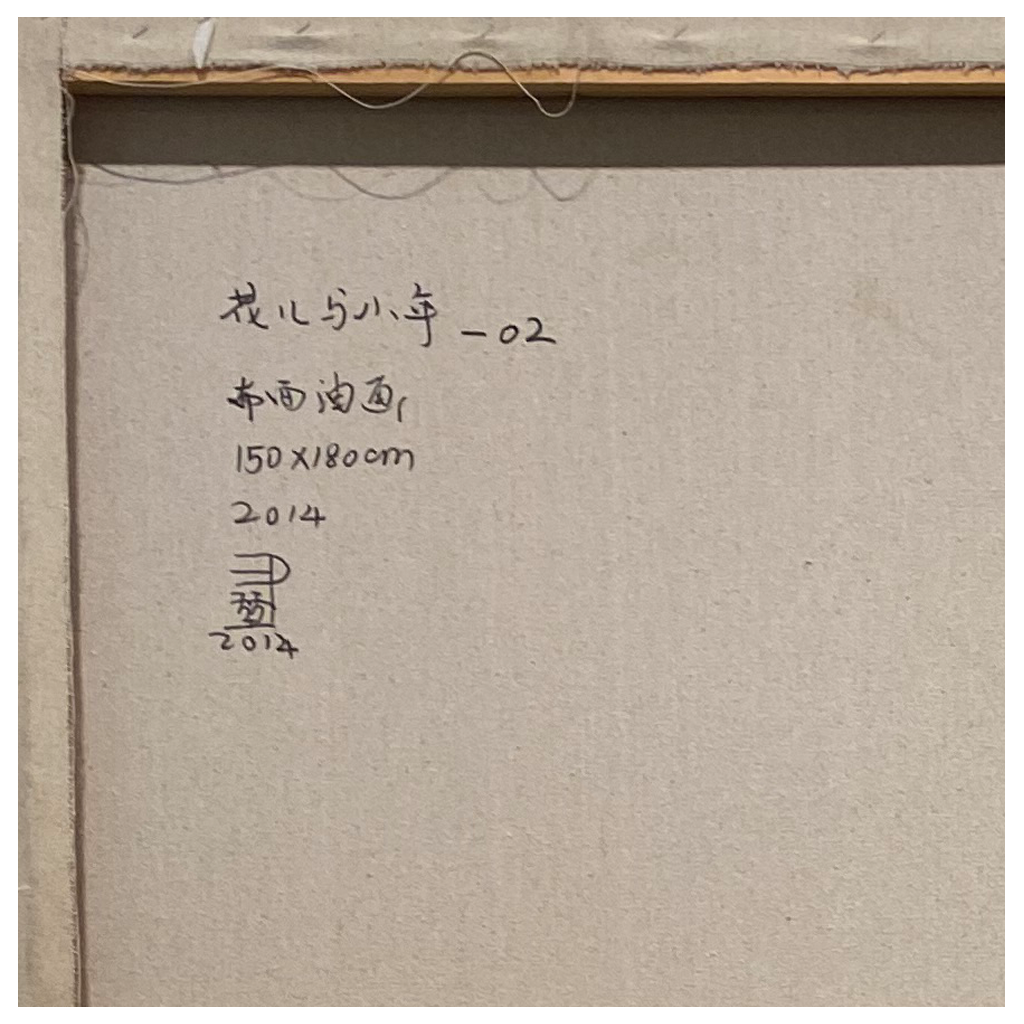 花儿与少年-02
布面油画
150X180cm
2014
2014